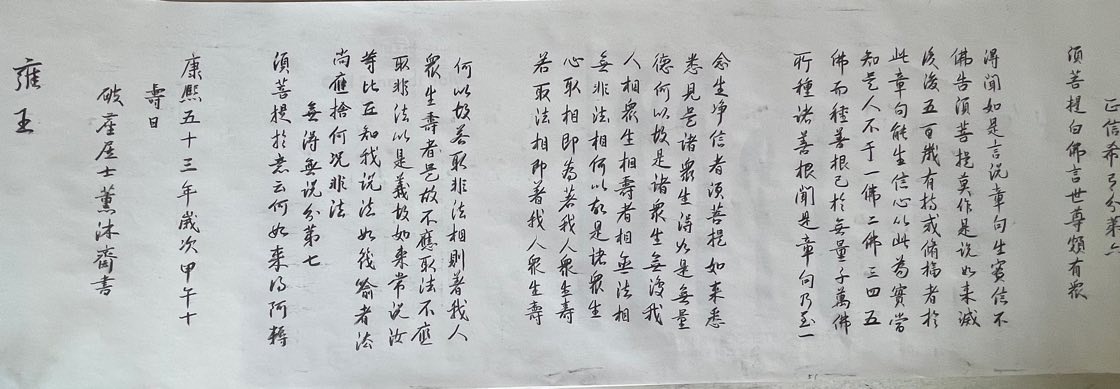 正信希有分第六
須菩提白佛言世尊頗有眾
得聞如是言說章句生實信不
佛告須菩提莫作是說如來滅
後後五百歲有持戒脩福者於
此章句能生信心以此為實當
知是人不于一佛二佛三四五
佛而種善根已於無量千萬佛
所種諸善根聞是章句乃至一
念生淨信者須菩提如來悉
悉見是諸眾生得如是無量
德何以故是諸眾生無復我
人相眾生相壽者相無法相
無非法相何以故是諸眾生
心取相即為若我人眾生壽
若取法相即著我人眾生壽
何以故若取非法相則著我人
眾生壽者是故不應取法不應
取非法以是義故如來常說汝
等比丘知我說法如筏喻者法
尚應捨何況非法
無得無說分第七
須菩提於意云何如來得阿耨
康熙五十三年歲次甲午十
壽日
破塵居士薰沐齋書
雍王